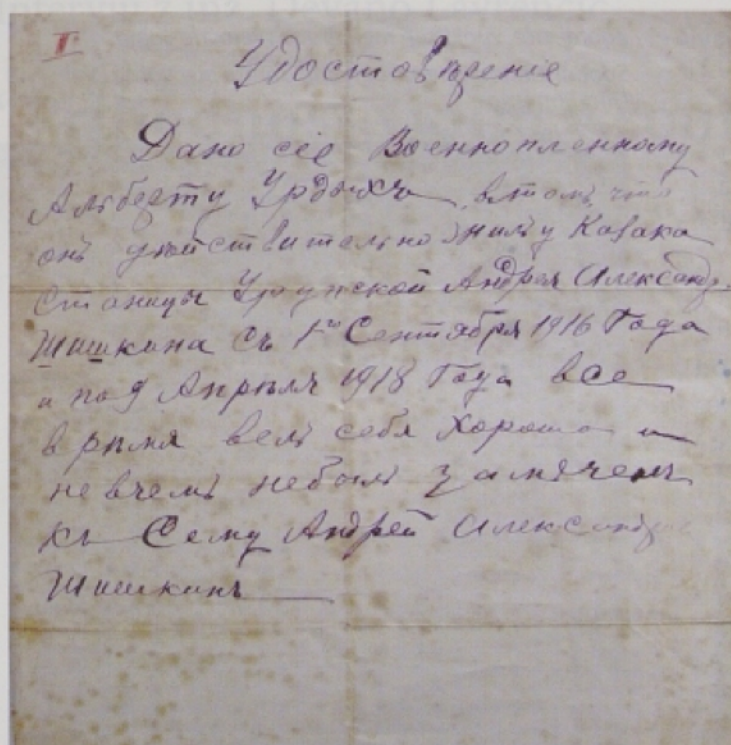 II
Удостовѣреніе
Дано сіе Военнопленному
Альберту Урдыхъ втомъ что
онъ действительно жилъ у Казака
станицы Урупской Андрея Александр.
Шишкина съ 1го Сентября 1916 Года
и под Апрѣля 1918 Года все
время велъ себя Хорошо и
невчемъ небылъ замѣченъ
къ Сему Андрей Александр
Шишкинъ